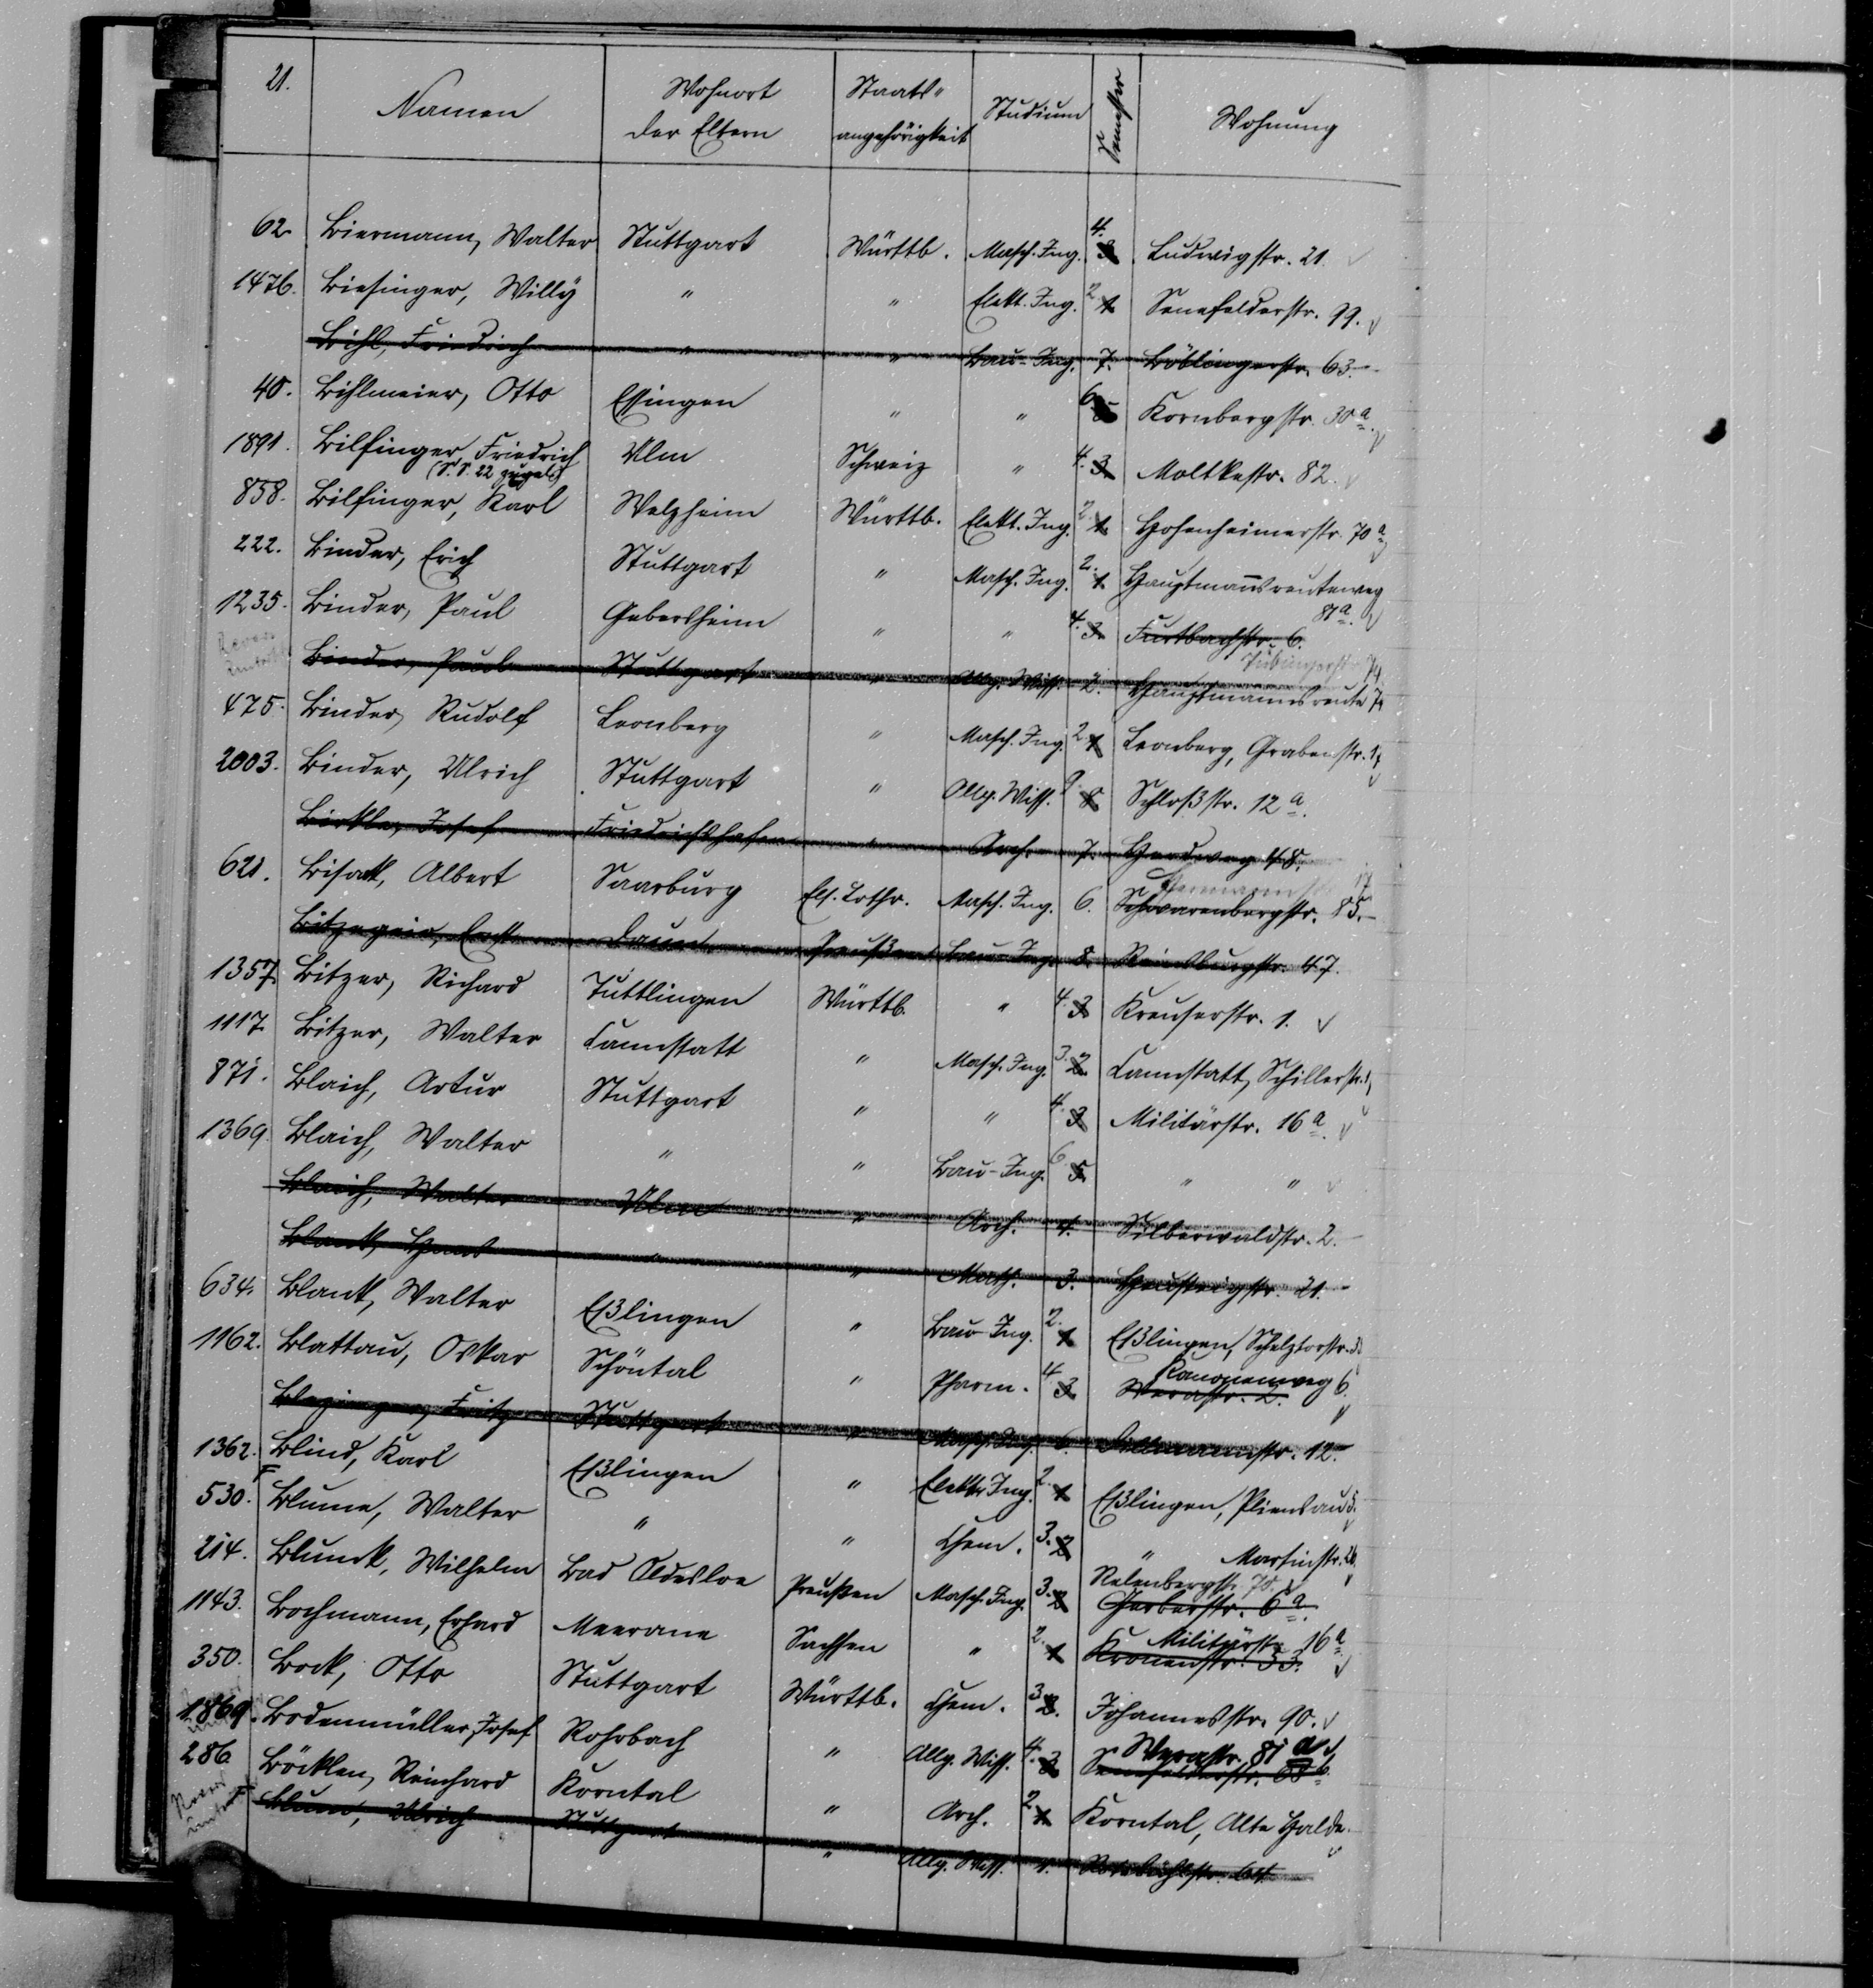 21. Namen Wohnort der Eltern Staats- angehörigkeit Studium Semester Wohnung
62. Biermann, Walter Stuttgart Württb. Masch. Ing. 4. 3 Ludwigstr. 21.
1476. Biesinger, Willy " " Elekt. Ing. 2. 1 Senefelderstr. 99.
Bihl, Friedrich " " Bau-Ing. 7. Böblingerstr. 63.
40. Bihlmeier, Otto Essingen " " 6. 5 Kornbergstr. 30a.
1891. Bilfinger, Friedrich Ulm Schweiz " 4. 3 Moltkestr. 82.
(S.S. 22 zugel.)
858. Bilfinger, Karl Welzheim Württb. Elekt. Ing. 2. 1. Hohenheimerstr. 70a
222. Binder, Erich Stuttgart " Masch. Ing. 2. 1 Hauptmannsreuteweg 81a.
1235. Binder, Paul Gebersheim " " 4. 3. Furtbachstr. 6.
Tübingerstr. 74.
Binder, Paul Stuttgart " Allg. Wiss. 2. Hauptmannsreute 74
475. Binder, Rudolf Leonberg " Masch. Ing. 2 1 Leonberg, Grabenstr. 17
2003. Binder, Ulrich Stuttgart " Allg. Wiss. 9. 8 Schloßstr. 12a.
Birkle, Josef Friedrichshafen " Arch. 7. Herdweg 48.
621. Bisack, Albert Saarburg Els. Lothr. Masch. Ing. 6. Schwarenbergstr. 85.
Daun Preußen Bau-Ing. 8. Reinsburgstr. 47.
1357. Bitzer, Richard Tuttlingen Württb. " 4. 3 Kreuserstr. 1.
1117. Bitzer, Walter Cannstatt " Masch. Ing. 3. 2. Cannstatt, Schillerstr.
871. Blaich, Artur Stuttgart " " 4. 3 Militärstr. 16a.
1369. Blaich, Walter " " Bau-Ing. 6. 5 " "
Blaich, Walter Ulm " Arch. 4. Silberwaldstr. 2.
Blank, Hans " " Math. 3. Heusteigstr. 21.
634. Blank, Walter Eßlingen " Bau-Ing. 2. 1 Eßlingen, Schelztorstr.
1162. Blattau, Oskar Schöntal " Pharm. 4. 3 Werastr. 2.
Kanonenweg 6.
Blezinger, Fritz Stuttgart " Masch. Ing. 6. 12.
1362. Blind, Karl Eßlingen " Elektr. Ing. 2. 1 Eßlingen, Pliensau 5.
530. F Blume, Walter " " Chem. 3. 2 " Martinstr. 26.
214. Blunck, Wilhelm Bad Oldesloe Preußen Masch. Ing. 3. 2 Gerberstr. 6a.
Relenbergstr. 78.
1143. Bochmann, Erhard Meerane Sachsen " 2. 1 Kronenstr. 33.
Militärstr. 16a
350. Bock, Otto Stuttgart Württb. Chem. 3 2. Johannesstr. 90.
1869. Bodenmüller, Josef Rohrbach " Allg. Wiss. 4. 3 Senefelderstr. 68b.
Werastr. 81a
286 Böcklen, Reinhard Korntal " Arch. 2. 1 Korntal, Alte Halde.
Blum, Ulrich Stuttgart " Allg. Wiss. 1. Rotebühlstr. 64.